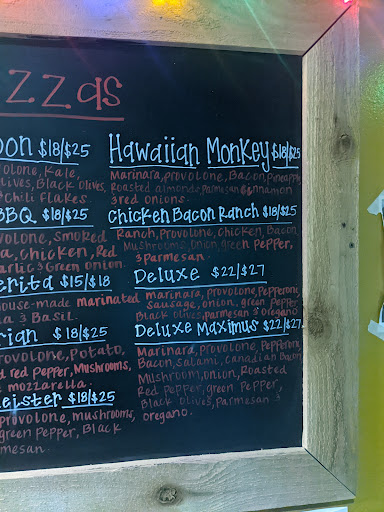 zzas
oon $18/$25
volone, Kale,
lives, Black olives,
chili Flakes.
BBQ $18/$25
volone, smoked
a, chicken, Red
arlic & Green onion.
erita $15/$18
ouse-made marinated
a & Basil.
rian $18/$25
rovolone, Potato,
d red pepper, Mushrooms,
d mozzarella.
eister $18/$25
provolone, mushrooms,
green pepper, Black
mesan.
Hawaiian Monkey $18/$25
Marinara, provolone, Bacon, Pineapple,
Roasted almonds, Parmesan, cinnamon
& red onions.
Chicken Bacon Ranch $18/$25
Ranch, Provolone, chicken, Bacon,
Mushrooms, onion, green Pepper,
& parmesan.
Deluxe $22/$27
marinara, provolone, Pepperoni,
Sausage, onion, green Pepper,
Black olives, parmesan & oregano
Deluxe Maximus $22/$27
Marinara, provolone, Pepperoni,
Bacon, Salami, Canadian Bacon
Mushroom, onion, Roasted
Red Pepper, green Pepper,
Black olives, Parmesan &
oregano.